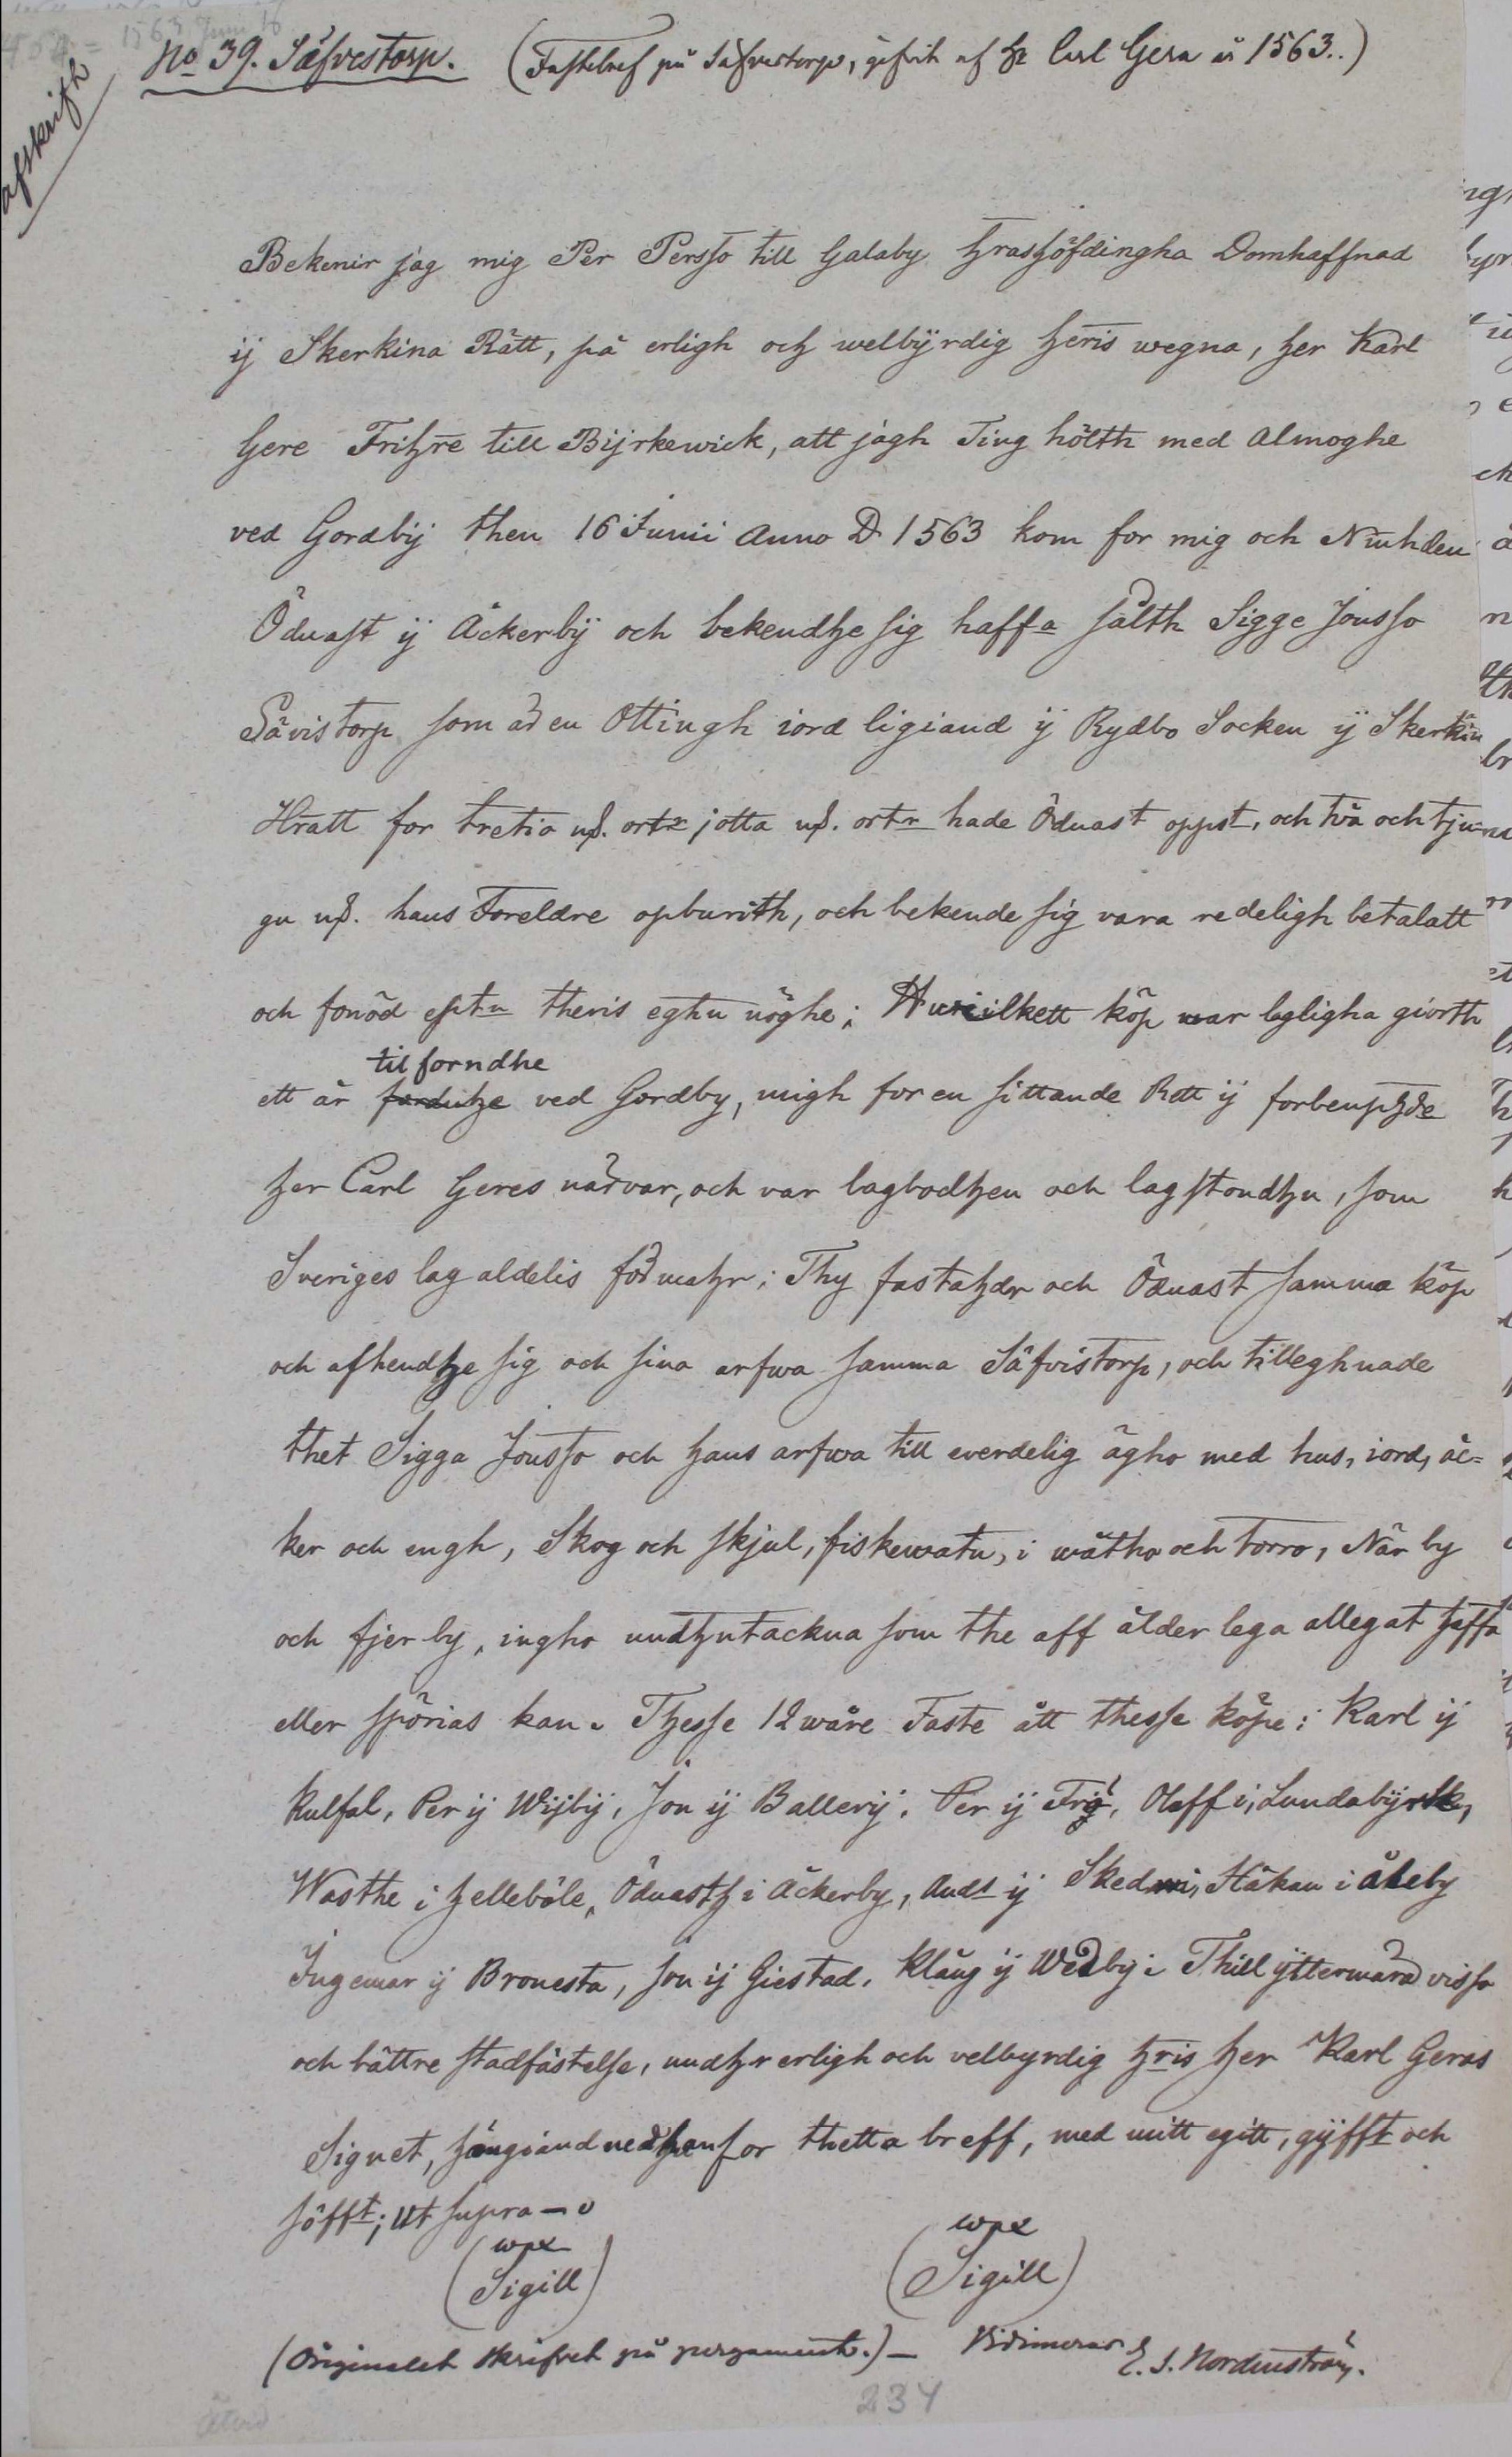 1563 Juni 16
afskrifh
No 39. Säfvestorp. (Fastebref på Säfvestorp, gifvit af Hr Carl Gera år 1563..)
Bekenir jag mig Per Persso till Galaby Hrashöfdingha Domhaffnad
ij Skerkina Rätt, på erligh och welbyrdig Heris wegna, Her Karl
Gere Frihre till Bijrkewick, att jagh Ting hölth med Almoghe
ved Gordbij then 16 Junii Anno D 1563 kom for mig och
Öduast ij Åckerbij och bekendhe sig haffa sålth Sigge Jonsso
Sävistorp som är en Ottingh iord ligiand ij Rydbo Socken ij Skerkin
Hratt for tretio up. ortr jotta up. ortr hade Öduast oppst, och två och tju-
gu up. hans Foreldre opburith, och bekende sig vara redeligh betalatt
och fonöd eptn theris eghn nöghe; Hwilkett köp war lagligha giorth
tilforndhe
ett år forduhe ved Gordby, migh for en sittande Rett ij
Her Carl Geres närvar, och var lagbodhen och lagstondhn, som
Sveriges lag aldelis formahr; Thy fastahdr och Öduast samma köp
och afhendhe sig och sina arfwa samma Säfvistorp, och tilleghnade
thet Sigga Jonsso och Hans arfwa till everdelig ägho med hus, iord, åc=
ker och engh, Skog och skjul, fiskewatn, i wåtho och torro, När by
och fjer by, ingho undhntackna som the aff ålder lega allegat Haffa
eller spörias kan. Thesse 12 wåre Faste ått thesse köpe: Karl ij
Kulsal, Per ij Wijbij, Jon ij Ballerij. Per ij Frij, Oleff i, Lundabijrk,
Wasthe i Helleböle, Öduasth i Åckerby, Ands ij Skedwi, Håkan i Åleby
Ingemar ij Bronesta, Jon ij Giestad. Klång ij Wedby i Thill ijttermåra visso
och bättre stadfästelse, undhr erligh och velbyrdig Hris Her Karl Geras
Signet, Hängiand nedhanfor thetta breff, med mitt egitt, gijfft och
söfft; Ut supra – o
(Sigill) (Sigill)
(Originalet skrifvet på pergament.) – Vidimeras E. I. Nordenström.
234
Åtvid